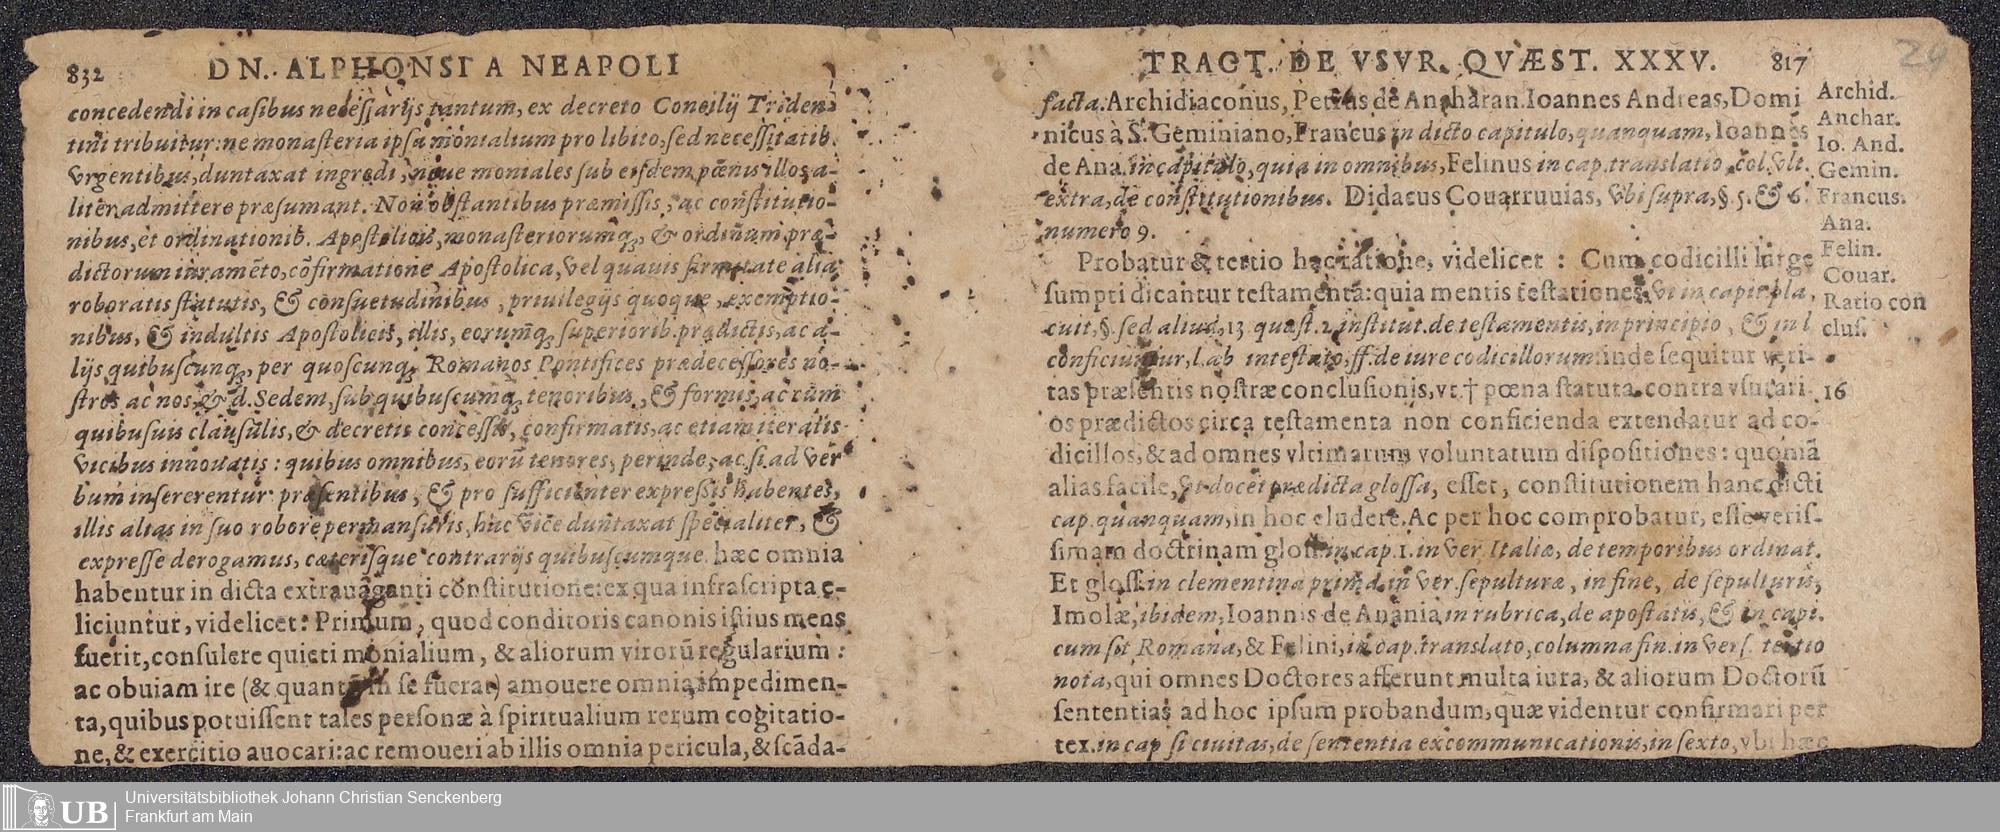 832 DN. ALPHONSI A NEAPOLI
concedendi in casibus necessarijs tantum, ex decreto Concilij Triden-
tini tribuitur: ne monasteria ipsa monialium pro libito, sed necessitatib.
vrgentibus, duntaxat ingredi, neue moniales sub eisdem pœnis illos a-
liter admittere præsumant. Non obstantibus præmissis, ac constitutio-
nibus, et ordinationib. Apostolicis, monasteriorumq́, & ordinum præ-
dictorum iuramẽto, cõfirmatione Apostolica, vel quauis firmitate alia
roboratis statutis, & consuetudinibus, priuilegijs quoque, exemptio-
nibus, & indultis Apostolicis, illis, eorumq́, superiorib. prædictis, ac a-
lijs quibuscunq́, per quoscunq́, Romanos Pontifices prædecessores no-
stros ac nos, & d. Sedem, sub quibuscumq́, tenoribus, & formis, ac cũm
quibusuis clausulis, & decretis concessis, confirmatis, ac etiam iteratis
vicibus innouatis: quibus omnibus, eorũ tenores, perinde, ac si ad ver
bum insererentur præsentibus, & pro sufficienter expressis habentes,
illis alias in suo robore permansuris, hac vice duntaxat specialiter, &
expresse derogamus, cæterisque contrarijs quibuscumque. hæc omnia
habentur in dicta extrauãganti constitutione: ex qua infrascripta e-
liciuntur, videlicet: Primum, quod conditoris canonis istius mens
fuerit, consulere quieti monialium, & aliorum virorũ regularium:
ac obuiam ire (& quantũ in se fuerat) amouere omnia impedimen-
ta, quibus potuissent tales personæ à spiritualium rerum cogitatio-
ne, & exercitio auocari: ac remoueri ab illis omnia pericula, & scãda-
TRACT. DE VSVR. QVÆST. XXXV. 817
29
facta. Archidiaconus, Petrus de Ancharan. Ioannes Andreas, Domi
nicus à S. Geminiano, Francus in dicto capitulo, quanquam, Ioannes
de Ana. in capitulo, quia in omnibus, Felinus in cap. translatio, col. vlt.
extra, de constitutionibus. Didacus Couarruuias, vbi supra, §. 5. & 6.
numero 9.
Probatur & tertio hac ratione, videlicet: Cum codicilli large
sumpti dicantur testamenta: quia mentis testationes, vt in capit. pla,
cuit, §. sed aliud, 13. quæst. 2. institut. de testamentis, in principio, & in l
conficiuntur, l. ab intestato, ff. de iure codicillorum: inde sequitur veri-
tas præsentis nostræ conclusionis, vt † pœna statuta contra vsurari-
os prædictos circa testamenta non conficienda extendatur ad co-
dicillos, & ad omnes vltimarum voluntatum dispositiones: quoniã
alias facile, vt docet prædicta glossa, esset, constitutionem hanc dicti
cap. quanquam, in hoc eludere. Ac per hoc comprobatur, esse veris-
simam doctrinam gloss. in cap. 1. in ver. Italiæ, de temporibus ordinat.
Et gloss. in clementina prima. in ver. sepulturæ, in fine, de sepulturis,
Imolæ, ibidem, Ioannis de Anania in rubrica, de apostatis, & in capi.
cum sit Romana, & Felini, in cap. translato, columna fin. in vers. tertio
nota, qui omnes Doctores afferunt multa iura, & aliorum Doctorũ
sententias ad hoc ipsum probandum, quæ videntur confirmari per
tex. in cap si ciuitas, de sententia excommunicationis, in sexto, vbi hæc
Archid.
Anchar.
Io. And.
Gemin.
Francus.
Ana.
Felin.
Couar.
Ratio con
clus.
16
UB
Universitätsbibliothek Johann Christian Senckenberg
Frankfurt am Main